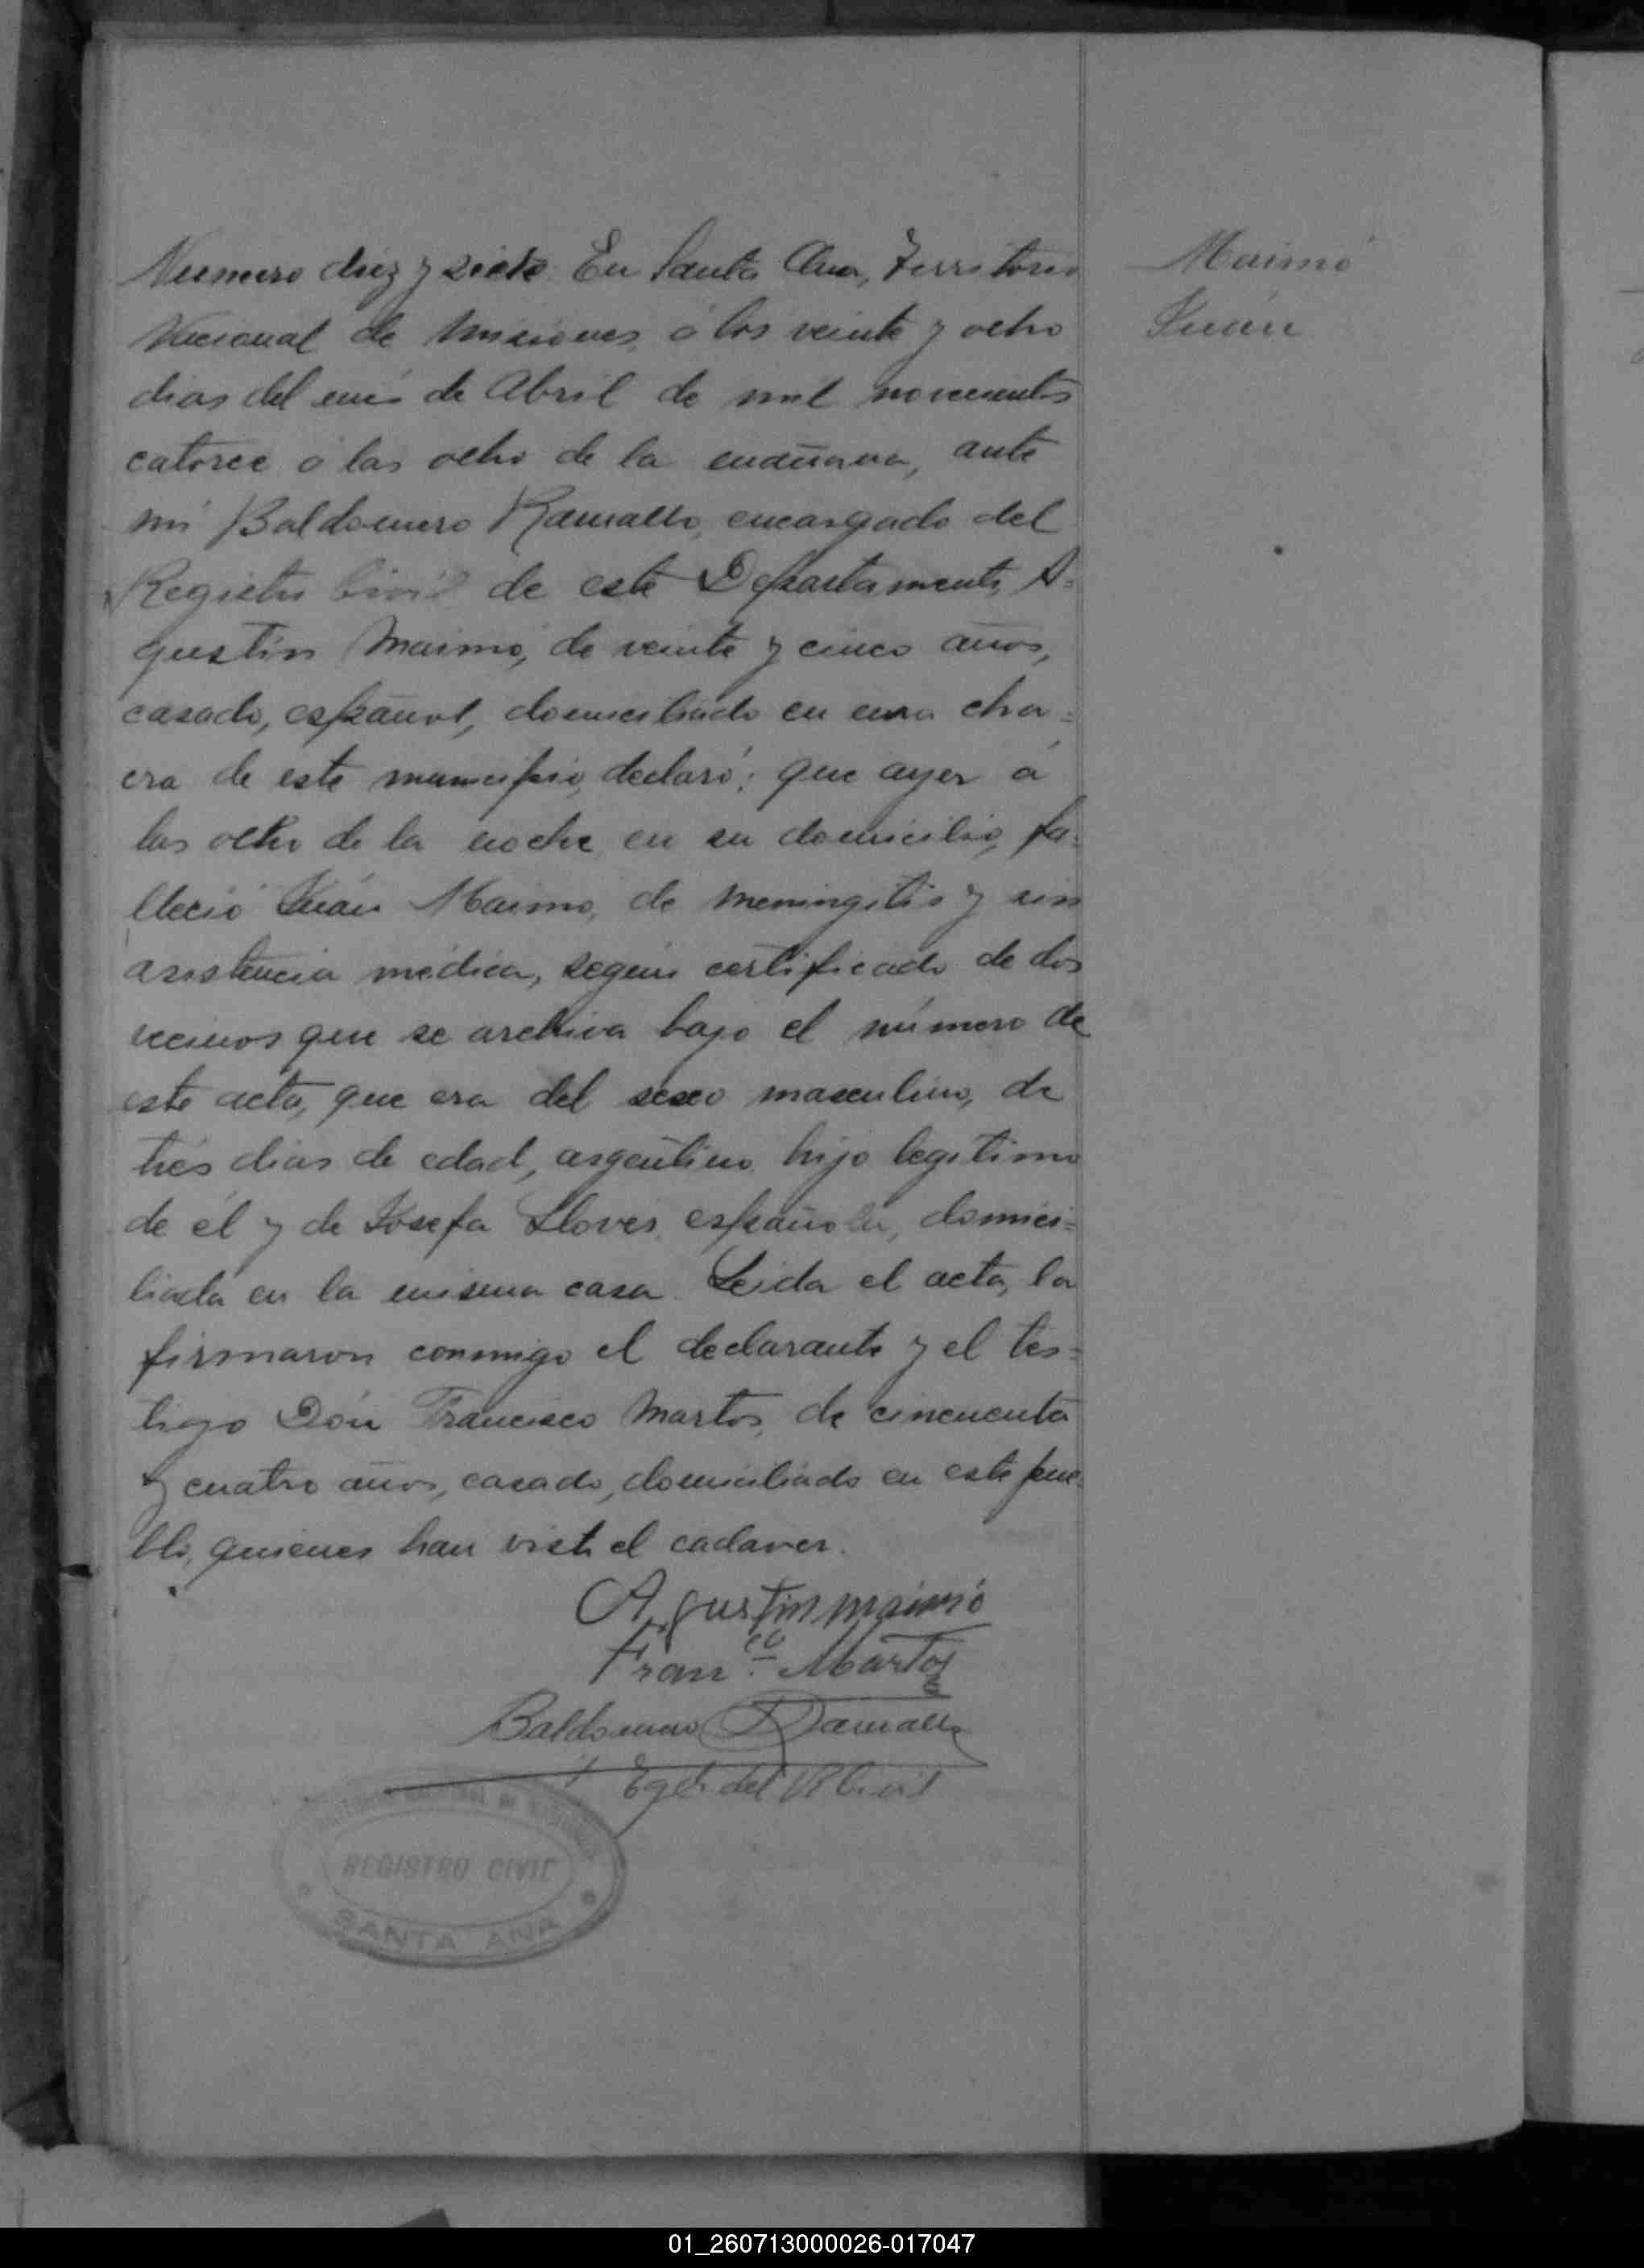 Numero diez y siete. En Santa Ana, Territorio
Nacional de Misiones, á los veinte y ocho
dias del més de Abril de mil novecientos
catorce á las ocho de la mañana, ante
mi Baldomero Ramallo, encargado del
Registro Civil de este Departamento, A=
gustín Maimó, de veinte y cinco años,
casado, español, domiciliado en una cha=
cra de este municipio, declaró: que ayer á
las ocho de la noche, en su domicilio, fa=
lleció Juán Maimó, de meningitis y sin
asistencia médica, según certificado de dos
vecinos que se archiva bajo el número de
este acta, que era del sexo masculino, de
trés dias de edad, argentino, hijo legítimo
de él y de Josefa Llovés, española, domici=
liada en la misma casa. Leida el acta, la
firmaron conmigo el declarante y el tes=
tigo Dón Francisco Martos, de cincuenta
y cuatro años, casado, domiciliado en este pue=
blo, quienes han visto el cadaver.
Agustin maimó
Fran.co Martos
Baldomero Ramallo
Egdo del R Civil
REGISTRO CIVIL
SANTA ANA
Maimó
Juán
01_260713000026-017047